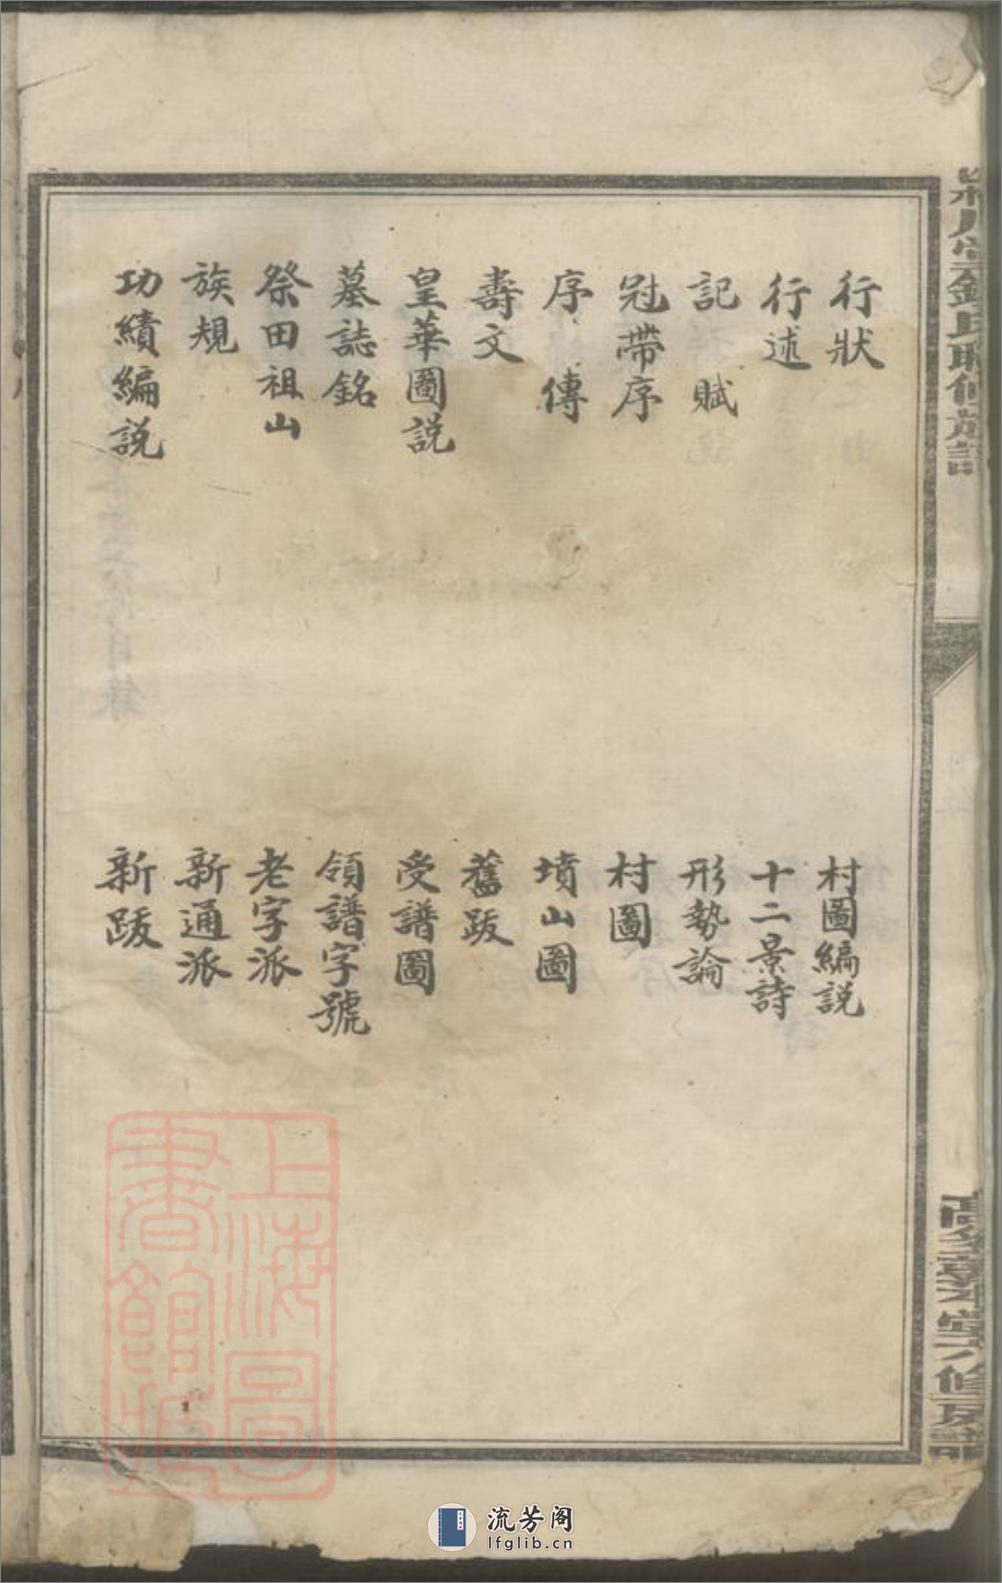 行狀
行述
記 賦
冠帶序
序 傳
壽文
皇華圖説
墓誌銘
祭田祖山
族規
功績編説
村圖編説
十二景詩
形勢論
村圖
墳山圖
舊跋
受譜圖
領譜字號
老字派
新通派
新跋
上海圖
書館藏
流芳阁
lfglib.cn